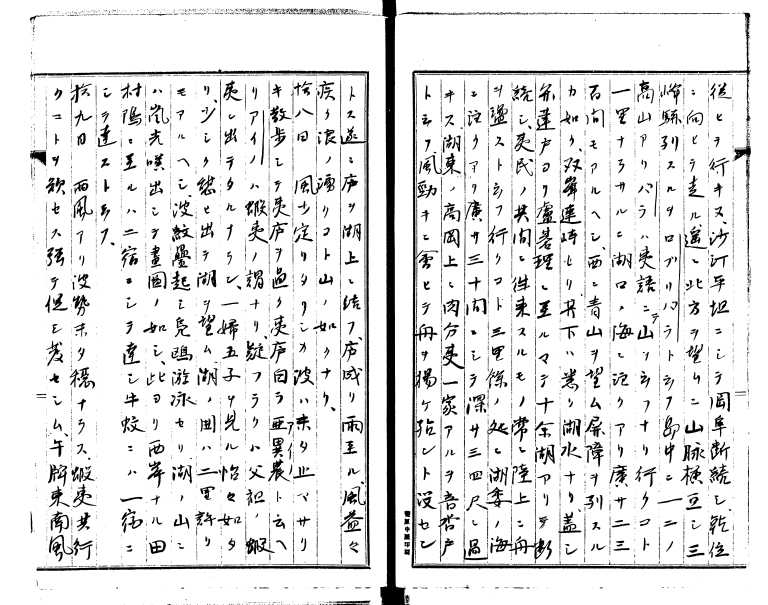 従ヒテ行キヌ、沙汀平坦ニシテ岡阜断続シ、乾位
ニ向ヒテ走ル遥ニ此方ヲ望ムニ山脉横亘シ三
峰駢列スルヲロブリパラトシフ島中ニ一二ノ
高山アリパラハ夷語ニテ山ヲ云フナリ行クコト
一里ナラサルニ湖口ノ海ニ注クアリ廣サ二三
百間モアルヘシ、西ニ青山ヲ望ム屏障ヲ列スル
カ如ク、双峯連峙セリ其下ハ悉ク湖水ナリ蓋シ
弁蓮戸ヨリ盧碁理ニ至ルマテ十余湖アリテ断
続シ、夷民ノ其間ニ往来スルモノ常ニ陸上ニ舟
ヲ盪ストシフ行クコト三里餘ノ処ニ湖委ノ海
ニ注クアリ廣サ三十間ニシテ深サ三四尺ニ過
キス湖東ノ高岡上ニ肉分夷一家アルヲ音呂戸
ト云フ風勁キニ會ヒテ舟ヲ揚ケ殆ント没セン
トス遂ニ庐ヲ湖上ニ結フ庐成リ雨至ル風益々
疾ク浪ノ涌クコト山ノ如クナリ、
拾八日 風少定リタリシカ波ハ未タ止マサリ
キ散歩シテ夷庐ヲ過ク夷庐自ラ亜異農ト云ヘ
リアイノハ蝦夷ノ謂ナリ疑フラクハ父祖ノ蝦
夷ニ出テタルナラン、一婦五子ヲ見ル怡々如タ
リ、少シク憩ヒ出テ湖ヲ望ム湖ノ囲ハ二里許リ
モアルヘシ、波紋疊起シ鳧鴎游泳セリ湖ノ山ニ
ハ嵐光噗出シテ畫図ノ如シ、此ヨリ西岸ナル田
村隝ニ至ルハニ宿ニシテ達シ牛蚊ニハ一宿ニ
シテ達ストシフ、
拾九日 西風アリ波勢未タ穏ナラス、蝦夷其行
クコトヲ欲セス強テ促シ発セシム午牌東南風